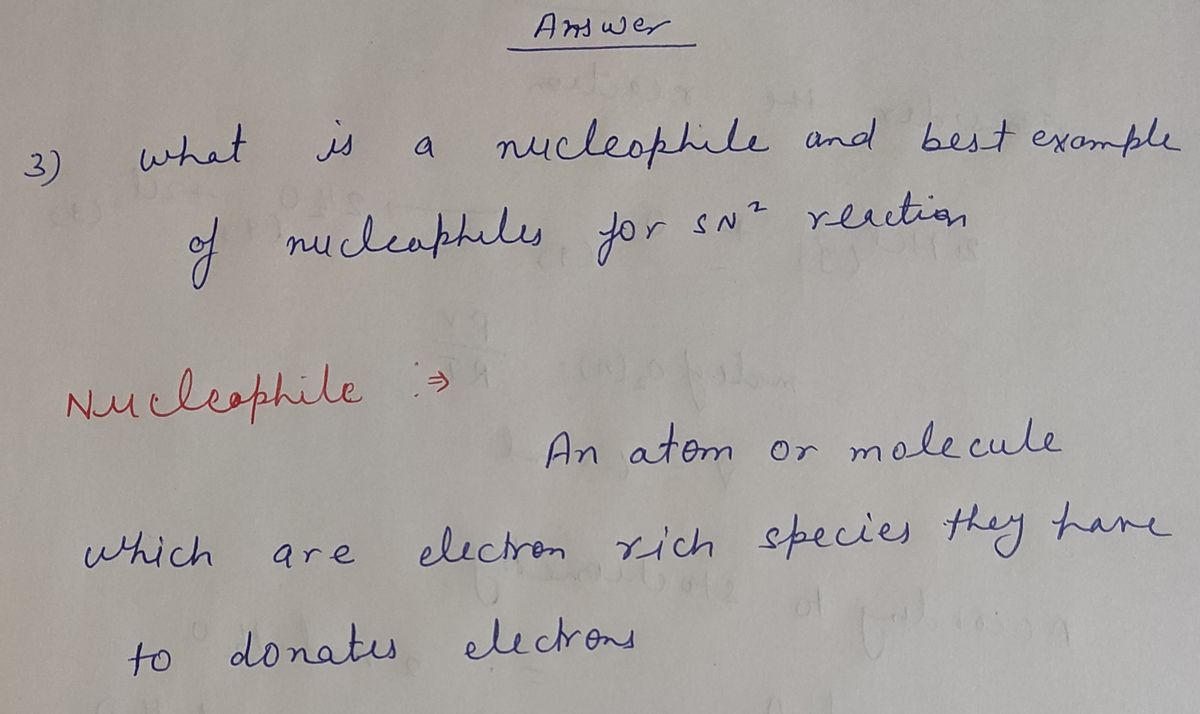 Answer
3) what is a nucleophile and best example
of nucleophiles for SN² reaction
Nucleophile :⇒
An atom or molecule
which are electron rich species they have
to donates electrons